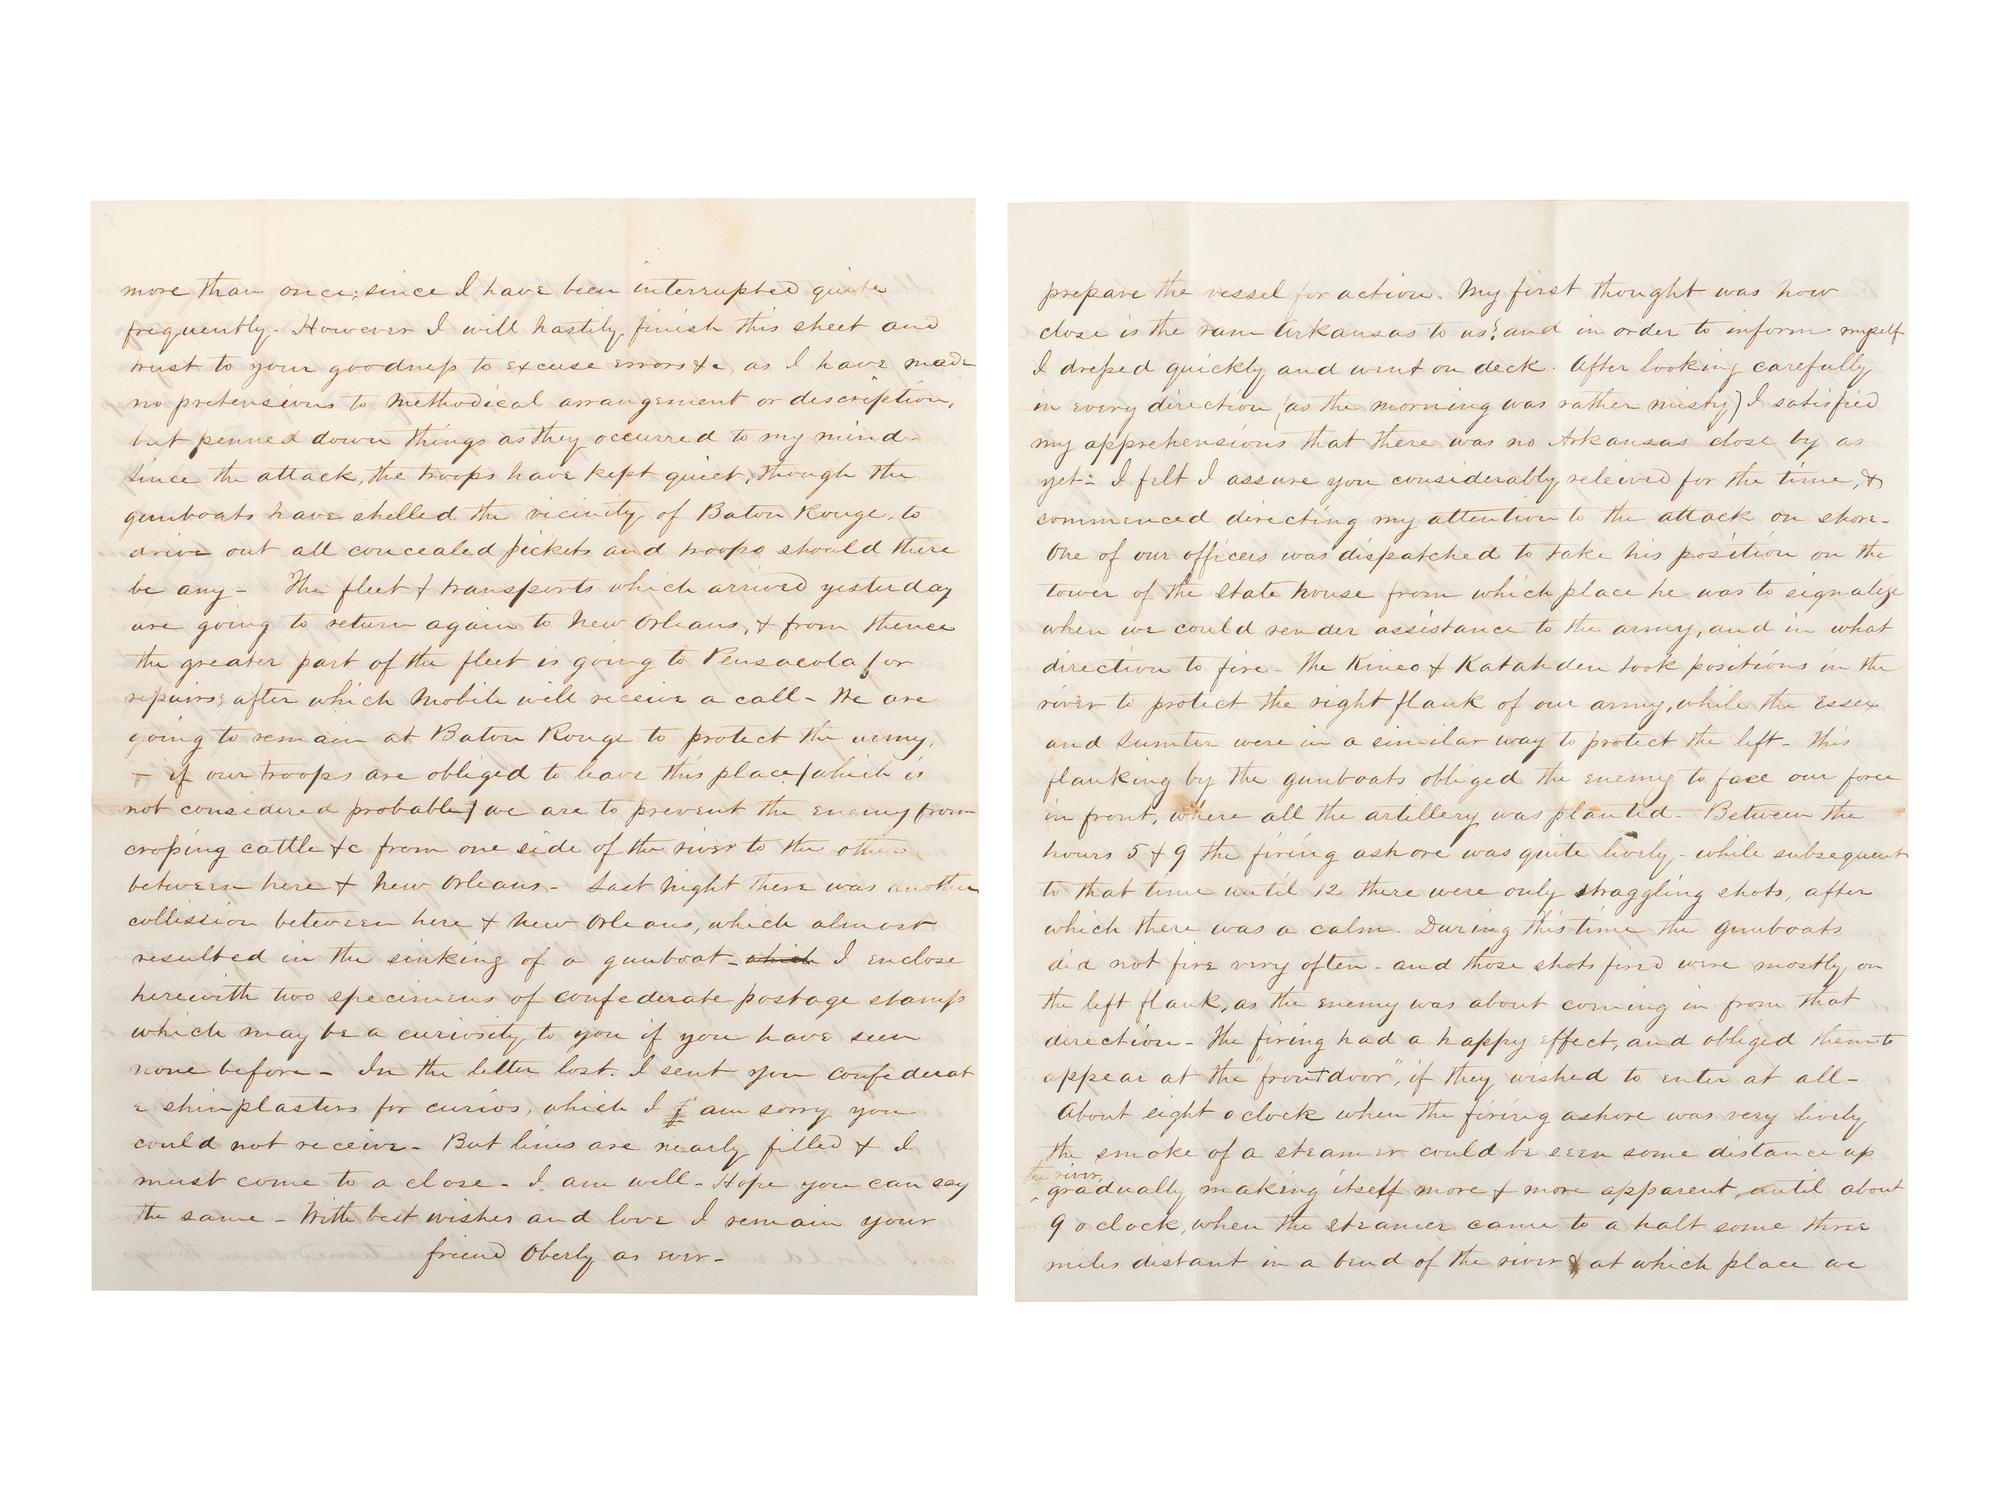 more than once; since I have been interrupted quite
frequently. However I will hastily finish this sheet and
trust to your goodness to excuse errors &c, as I have made
no pretensions to methodical arrangement or description,
but penned down things as they occurred to my mind-
Since the attack, the troops have kept quiet, though the
gunboats have shelled the vicinity of Baton Rouge, to
drive out all concealed pickets and troops should there
be any - The fleet & transports which arrived yesterday
are going to return again to New Orleans, & from thence
the greater part of the fleet is going to Pensacola for
repairs; after which Mobile will receive a call - We are
going to remain at Baton Rouge to protect the army,
& if our troops are obliged to leave this place (which is
not considered probable) we are to prevent the enemy from
croping cattle &c from one side of the river to the other
between here & New Orleans - Last Night there was another
collission between here & New Orleans, which almost
resulted in the sinking of a gunboat - which I enclose
herewith two specimens of confederate postage stamps
which may be a curiosity to you if you have seen
none before - In the letter lost. I sent you confederat
e shinplasters for curios, which I I am sorry you
could not receive - But lines are nearly filled & I
must come to a close - I am well - Hope you can say
the same - With best wishes and love I remain your
friend Oberly as ever -
prepare the vessel for action. My first thought was how
close is the ram Arkansas to us? and in order to inform myself
I dresed quickly and went on deck. After looking carefully
in every direction (as the morning was rather misty) I satisfied
my apprehensions that there was no Arkansas close by as
yet - I felt I assure you considerably releived for the time, &
commenced directing my attention to the attack on shore.
One of our officers was dispatched to take his position on the
tower of the State house from which place he was to signalize
when we could render assistance to the army, and in what
direction to fire - The Kineo & Katahden took positions in the
river to protect the right flank of our army, while the Essex
and Sumter were in a similar way to protect the left - This
flanking by the gunboats obliged the enemy to face our force
in front, where all the artillery was planted - Between the
hours 5 & 9 the firing ashore was quite lively - while subsequent
to that time until 12 there were only straggling shots, after
which there was a calm. During this time the gunboats
did not fire very often - and those shots fired were mostly on
the left flank, as the enemy was about coming in from that
direction - The firing had a happy effect, and obliged them to
appear at the "front door", if they wished to enter at all -
About eight o clock when the firing ashore was very lively
the smoke of a steamer could be seen some distance up
the river,
gradually making itself more & more apparent, until about
9 o clock, when the steamer came to a halt some three
miles distant in a bend of the river & at which place we